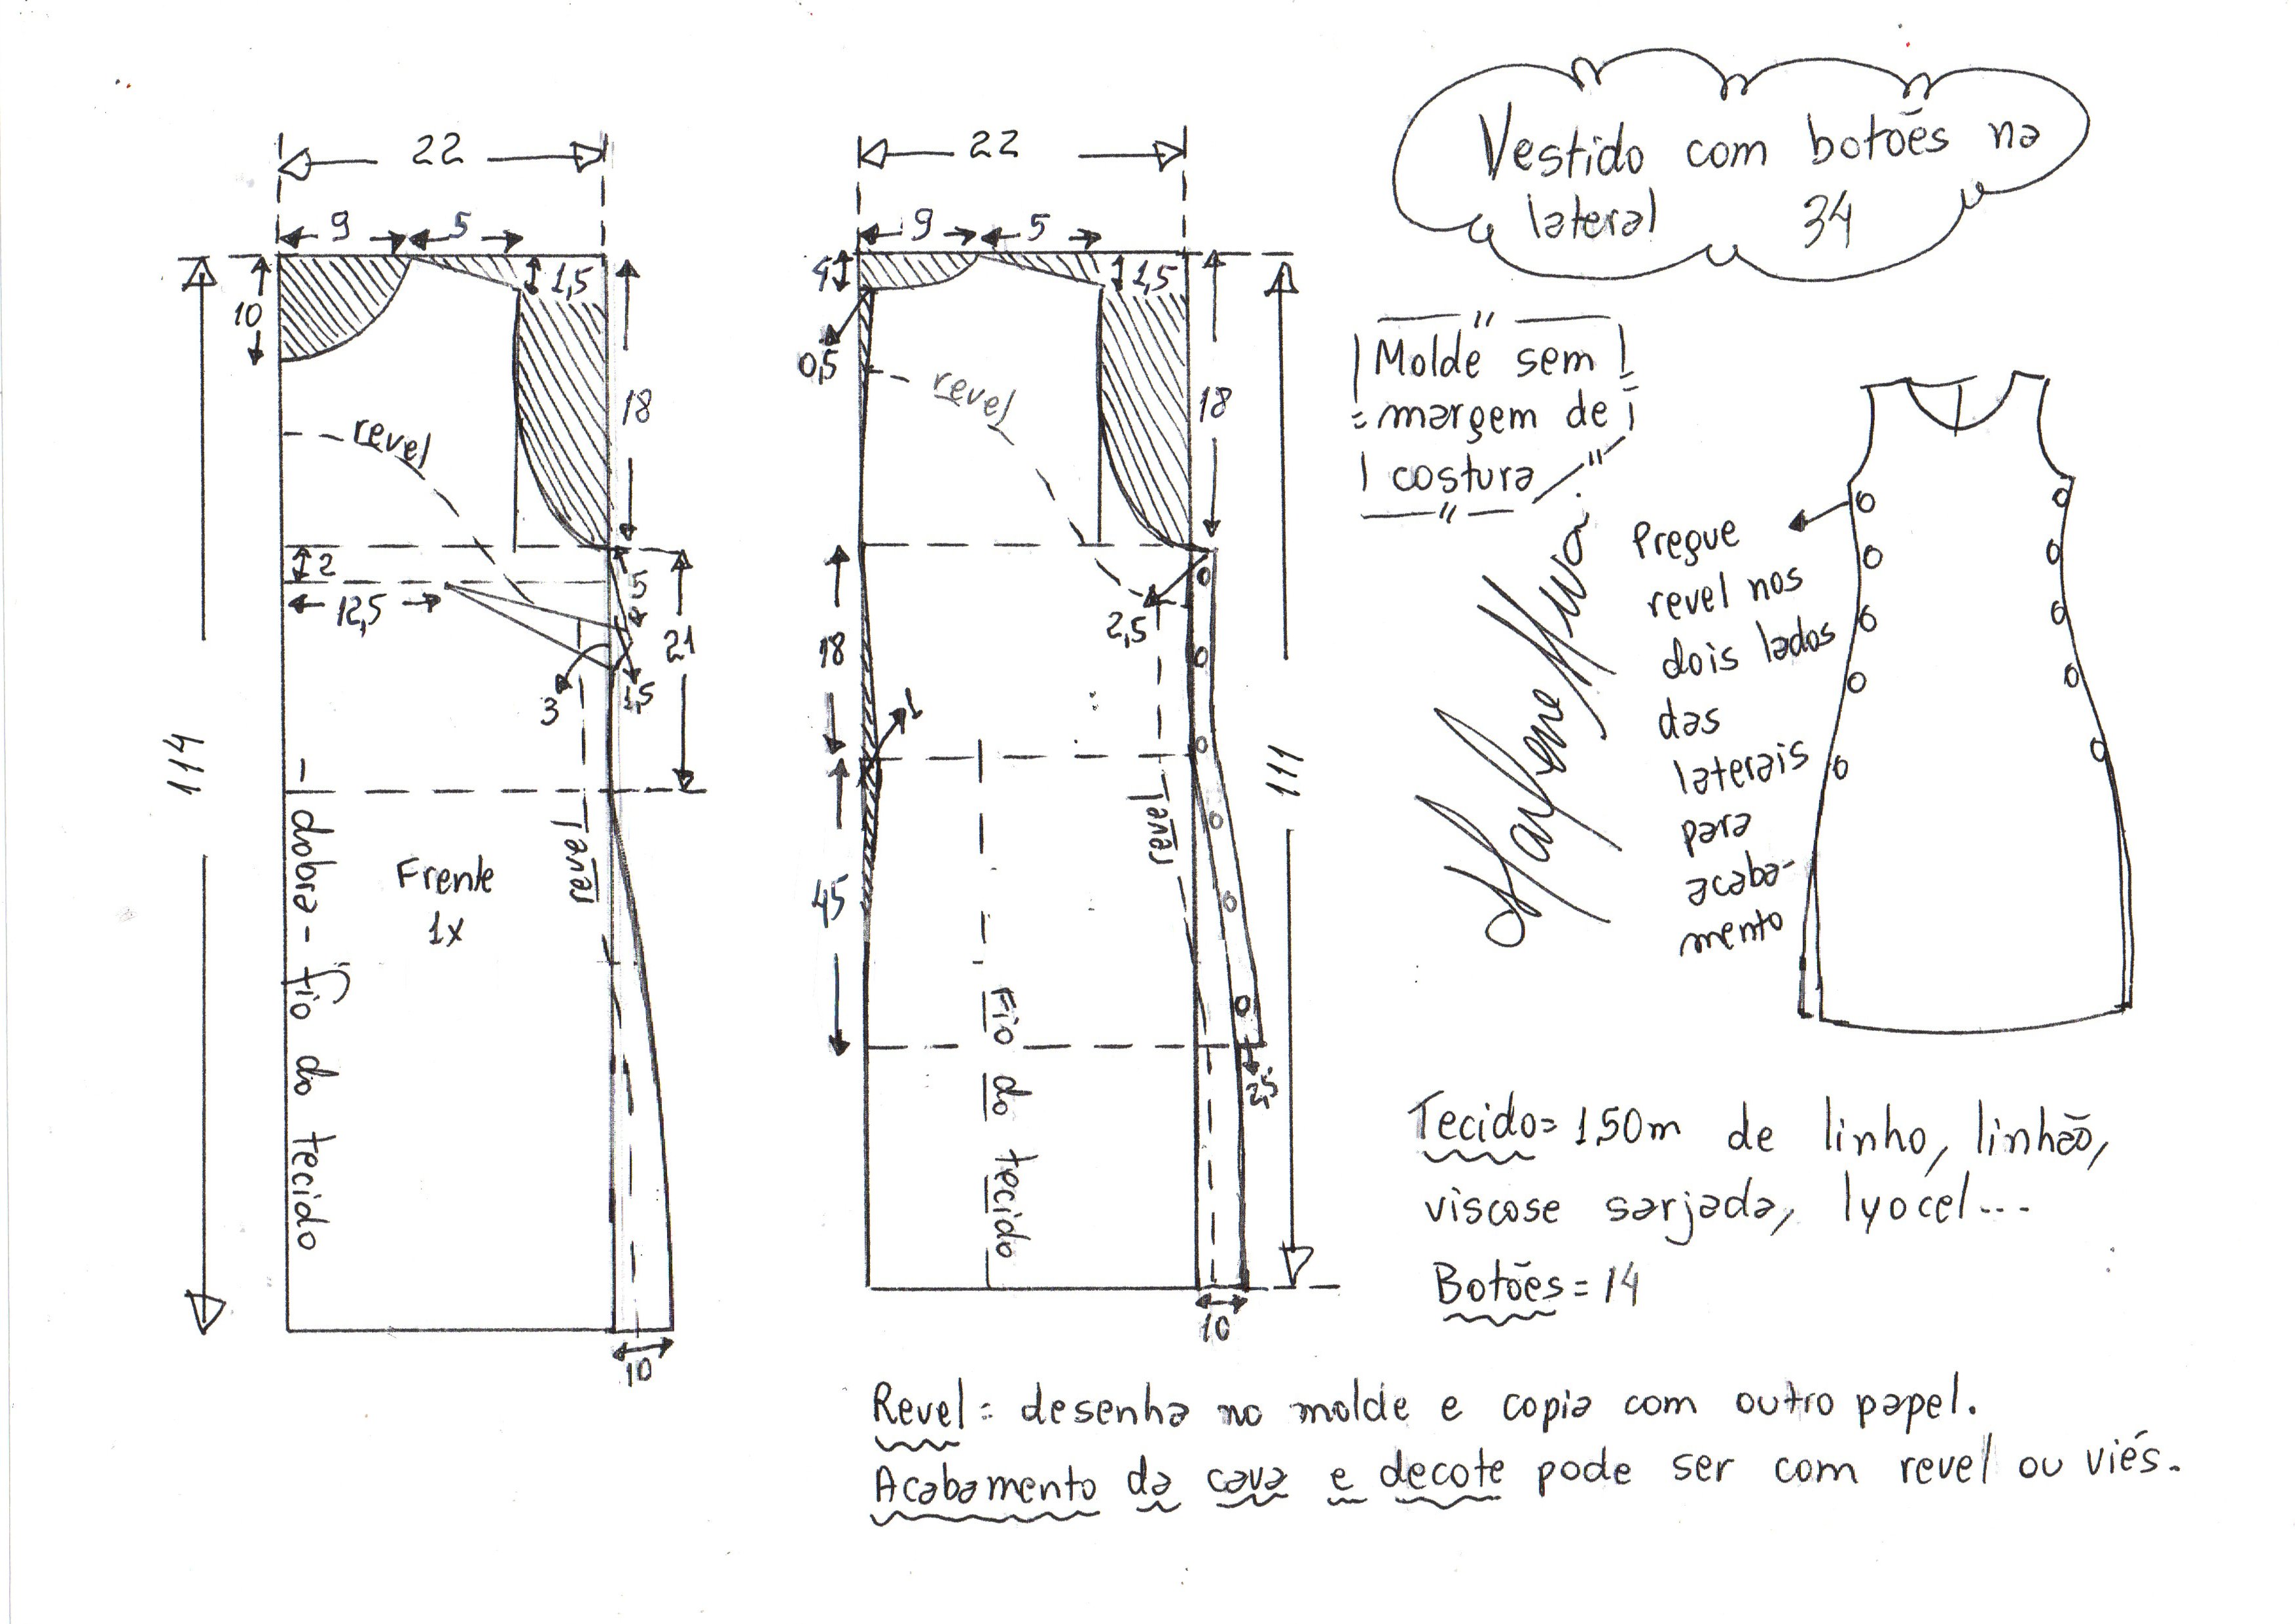 Vestido com botões na
lateral 34
Molde sem
margem de
costura
Marlene Mukai
22
9 5
1,5
10
18
revel
2
12,5
5
3
1,5
21
114
dobra - fio do tecido
Frente
1x
revel
10
22
9 5
4
1,5
0,5
revel
18
2,5
18
1
revel
45
111
Fio do tecido
2,5
10
Pregue
revel nos
dois lados
das
laterais
para
acaba-
mento
Tecido= 1,50m de linho, linhão,
viscose sarjada, lyocel...
Botões=14
Revel= desenha no molde e copia com outro papel.
Acabamento da cava e decote pode ser com revel ou viés.